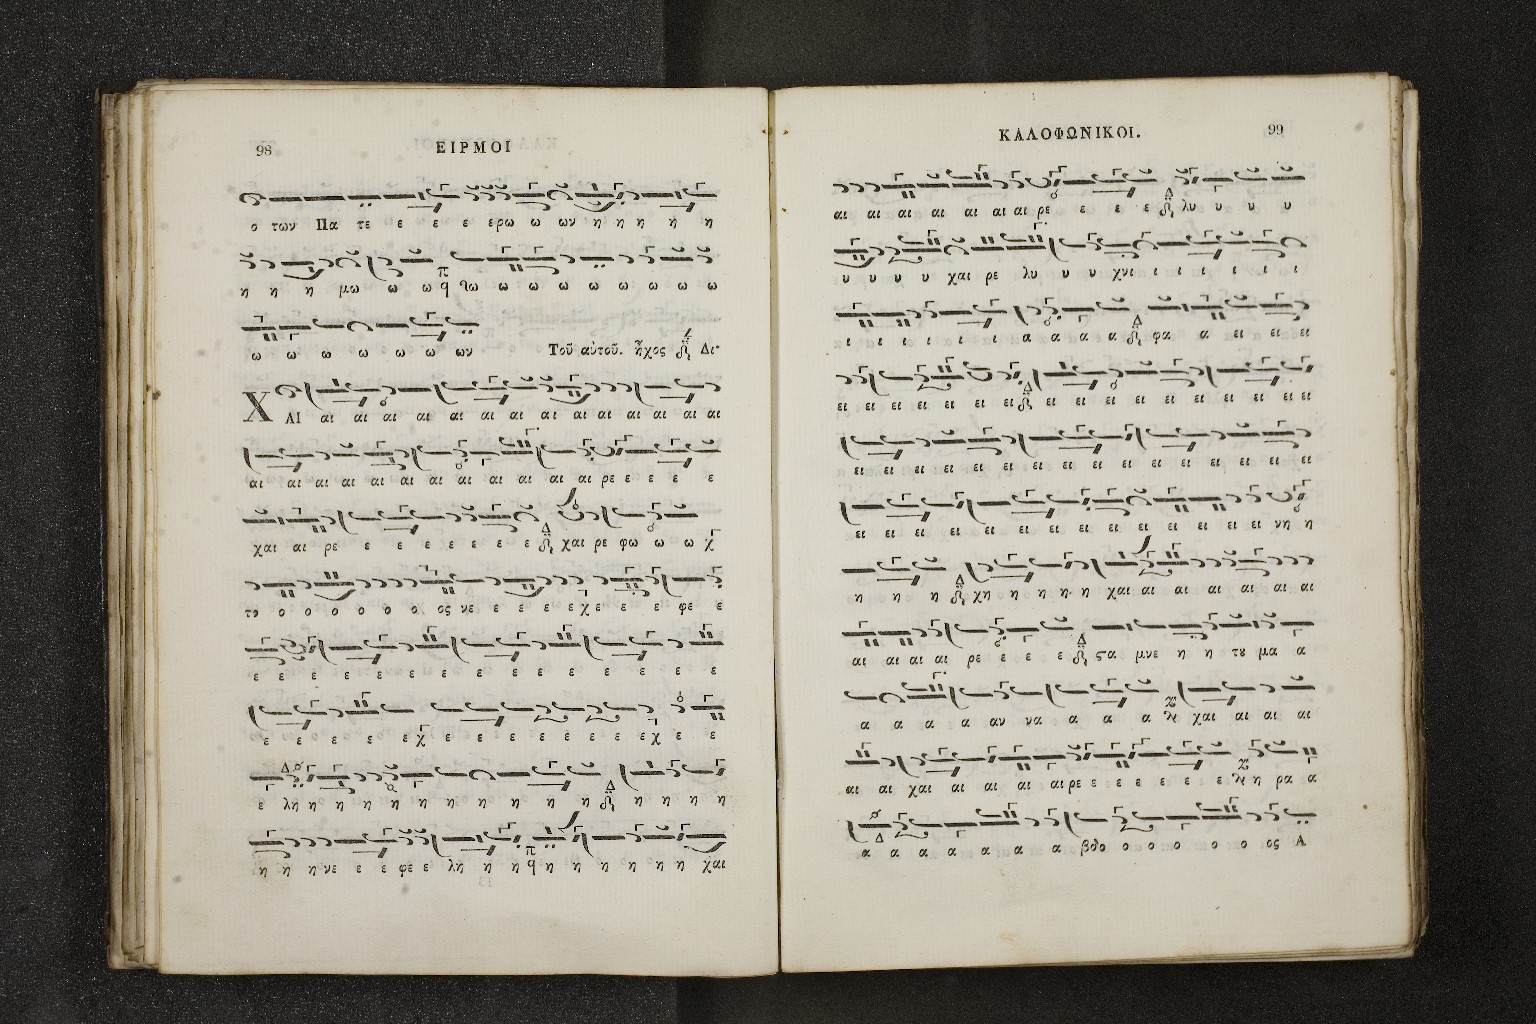 98
ΕΙΡΜΟΙ
ο των Πα τε ε ε ε ερω ω ων η η η η η
η η η μω ω ω θω ω ω ω ω ω ω ω ω
ω ω ω ω ω ω ω ων Τοῦ αὐτοῦ. ἦχος Δι·
ΧΑΙ αι αι αι αι αι αι αι αι αι αι αι αι αι αι
αι αι αι αι αι αι αι αι αι αι αι αι ρε ε ε ε ε
χαι αι ρε ε ε ε ε ε ε ε χαι ρε φω ω ω χ
τυ ο ο ο ο ο ο ος νε ε ε ε ε χε ε ε ε φε ε
ε ε ε ε ε ε ε ε ε ε ε ε ε ε ε
ε ε ε ε ε χ ε ε ε ε ε ε ε ε χ ε ε
ε λη η η η η η η η η η η η η η η
η η η νε ε ε φε ε λη η η η η η η η η χαι
ΚΑΛΟΦΩΝΙΚΟΙ.
99
αι αι αι αι αι αι αι ρε ε ε ε λυ υ υ υ
υ υ υ υ χαι ρε λυ υ υ χνι ι ι ι ι ι ι
ι ι ι ι ι ι α α α α φα α ει ει ει
ει ει ει ει ει ει ει ει ει ει ει ει ει ει ει ει
ει ει ει ει ει ει ει ει ει ει ει ει ει ει ει
ει ει ει ει ει ει ει ει ει ει ει ει ει νη η
η η η χη η η η η χαι αι αι αι αι αι αι
αι αι αι αι ρε ε ε ε ςα μνε η η τυ μα α
α α α α αν να α α α χαι αι αι αι
αι αι χαι αι αι αι αι ρε ε ε ε ε ε ε η ρα α
α α α α α α α βδο ο ο ο ο ο ος Α